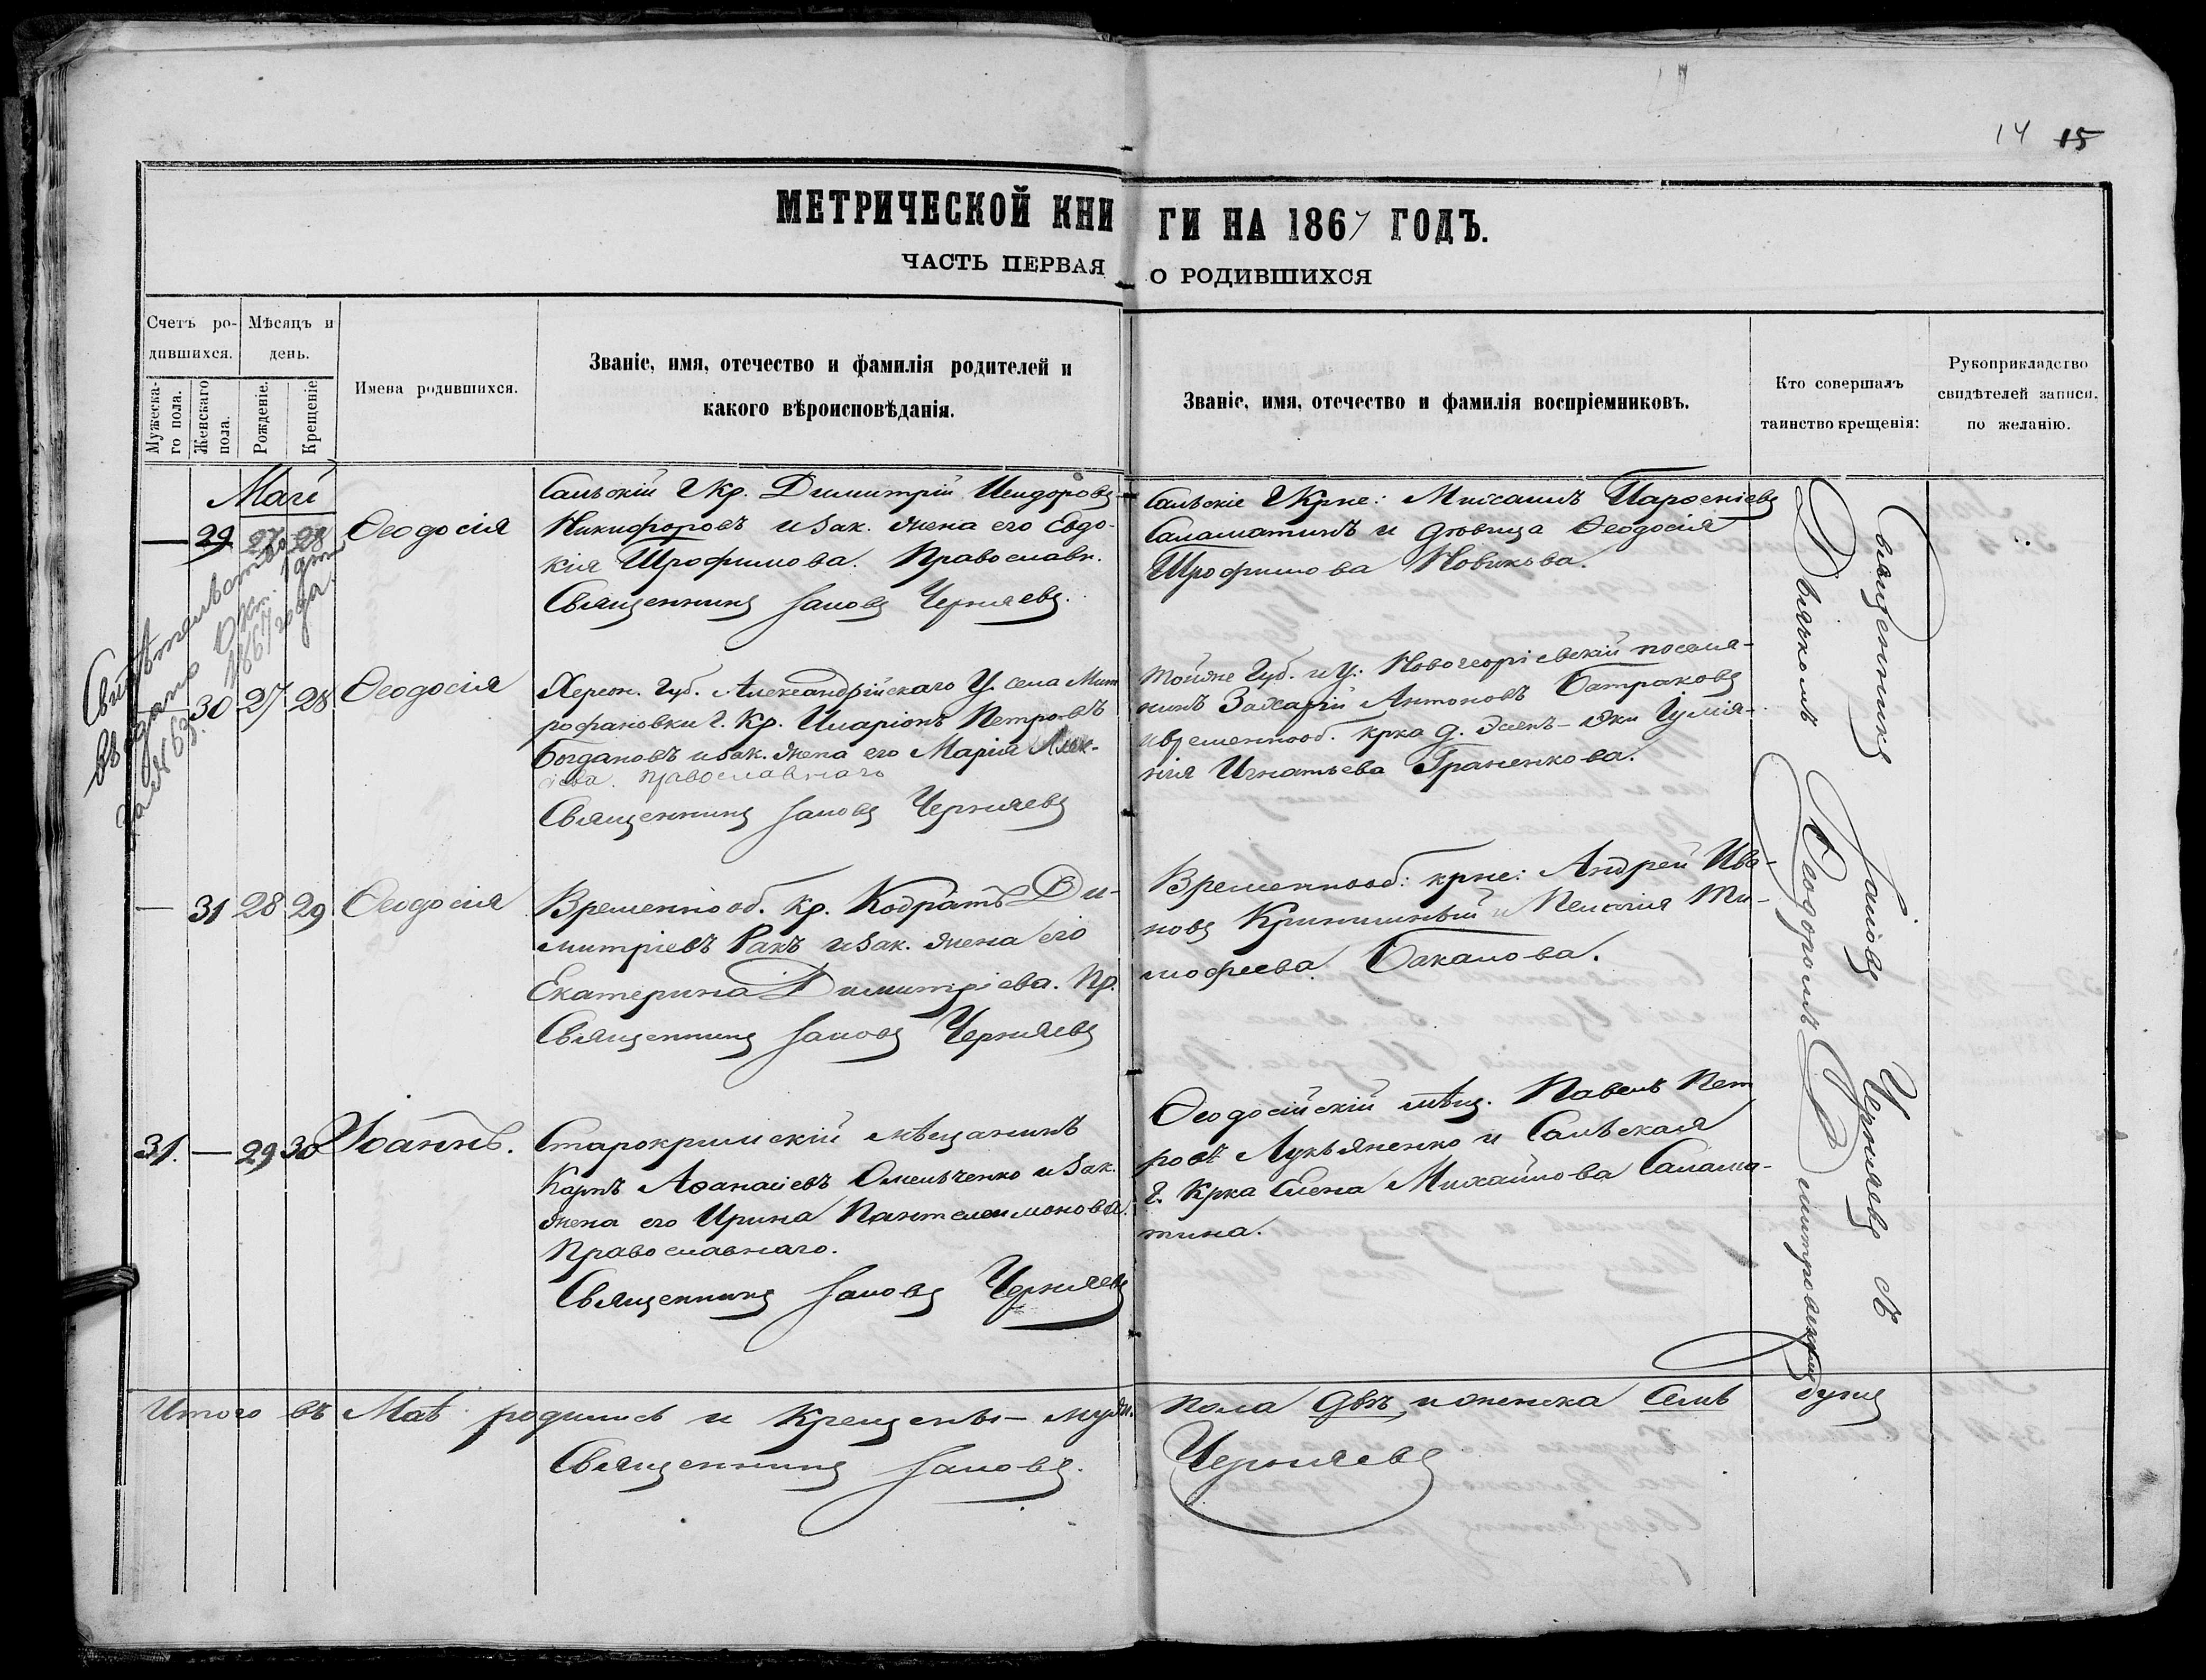 14 15
МЕТРИЧЕСКОЙ КНИГИ НА 1867 ГОДЪ.
ЧАСТЬ ПЕРВАЯ О РОДИВШИХСЯ
Счетъ родившихся.
Мужескаго пола.
Женскаго пола.
Мѣсяцъ и день.
Рожденіе.
Крещеніе.
Имена родившихся.
Званіе, имя, отечество и фамилія родителей и
какого вѣроисповѣданія.
Званіе, имя, отечество и фамилія воспріемниковъ.
Кто совершалъ
таинство крещенія:
Рукоприкладство
свидѣтелей записи,
по желанію.
Маій
— 29 27 28 Ѳеодосія
Сальскій Г. Кр. Димитрій Исидоровъ
Никифоровъ и зак. жена его Евдо-
кія Трофимова. Православн.
Священникъ Іаковъ Черняевъ.
Сальскіе Г. Крне: Михаилъ Парѳеніевъ
Саламатинъ и дѣвица Ѳеодосія
Трофимова Новикова.
Свидѣтельство
выдано Окт. 1 дня
1867 года
за № 63.
— 30 27 28 Ѳеодосія
Херсон. Губ. Александрійскаго У. села Мит
рофановки г. Кр. Иларіонъ Петровъ
Богдановъ и зак. жена его Марія Алек-
сіева. Православнаго
Священникъ Іаковъ Черняевъ
Тойже Губ. и У. Новогеоргіевскій поселя-
нинъ Захарій Антоновъ Батраковъ
и временнооб. крка д.
Игнатьева Граненкова.
— 31 28 29 Ѳеодосія
Временнооб. Кр. Кодратъ Ди-
митріевъ Ракъ и зак. жена его
Екатерина Димитріева. Пр.
Священникъ Іаковъ Черняевъ
Временнооб: крне: Андрей Ива-
новъ и Пелагія Ти-
мофеева Бакалова.
31. — 29 30 Іоаннъ.
Старокрымскій мѣщанинъ
Карпъ Аѳанасіевъ Омельченко и зак.
жена его Ирина Пантелеимонова.
Православнаго.
Священникъ Іаковъ Черняевъ
Ѳеодосійскій мѣщ. Павелъ Пет
ровъ Лукьяненко и Сальская
г. Крка Елена Михайлова Салама-
тина.
Священникъ Іаковъ Черняевъ съ
Дьячкомъ Ѳеодоромъ
Итого въ Маѣ родились и крещены — муж. пола двѣ, и женска семь душъ
Священникъ Іаковъ. Черняевъ